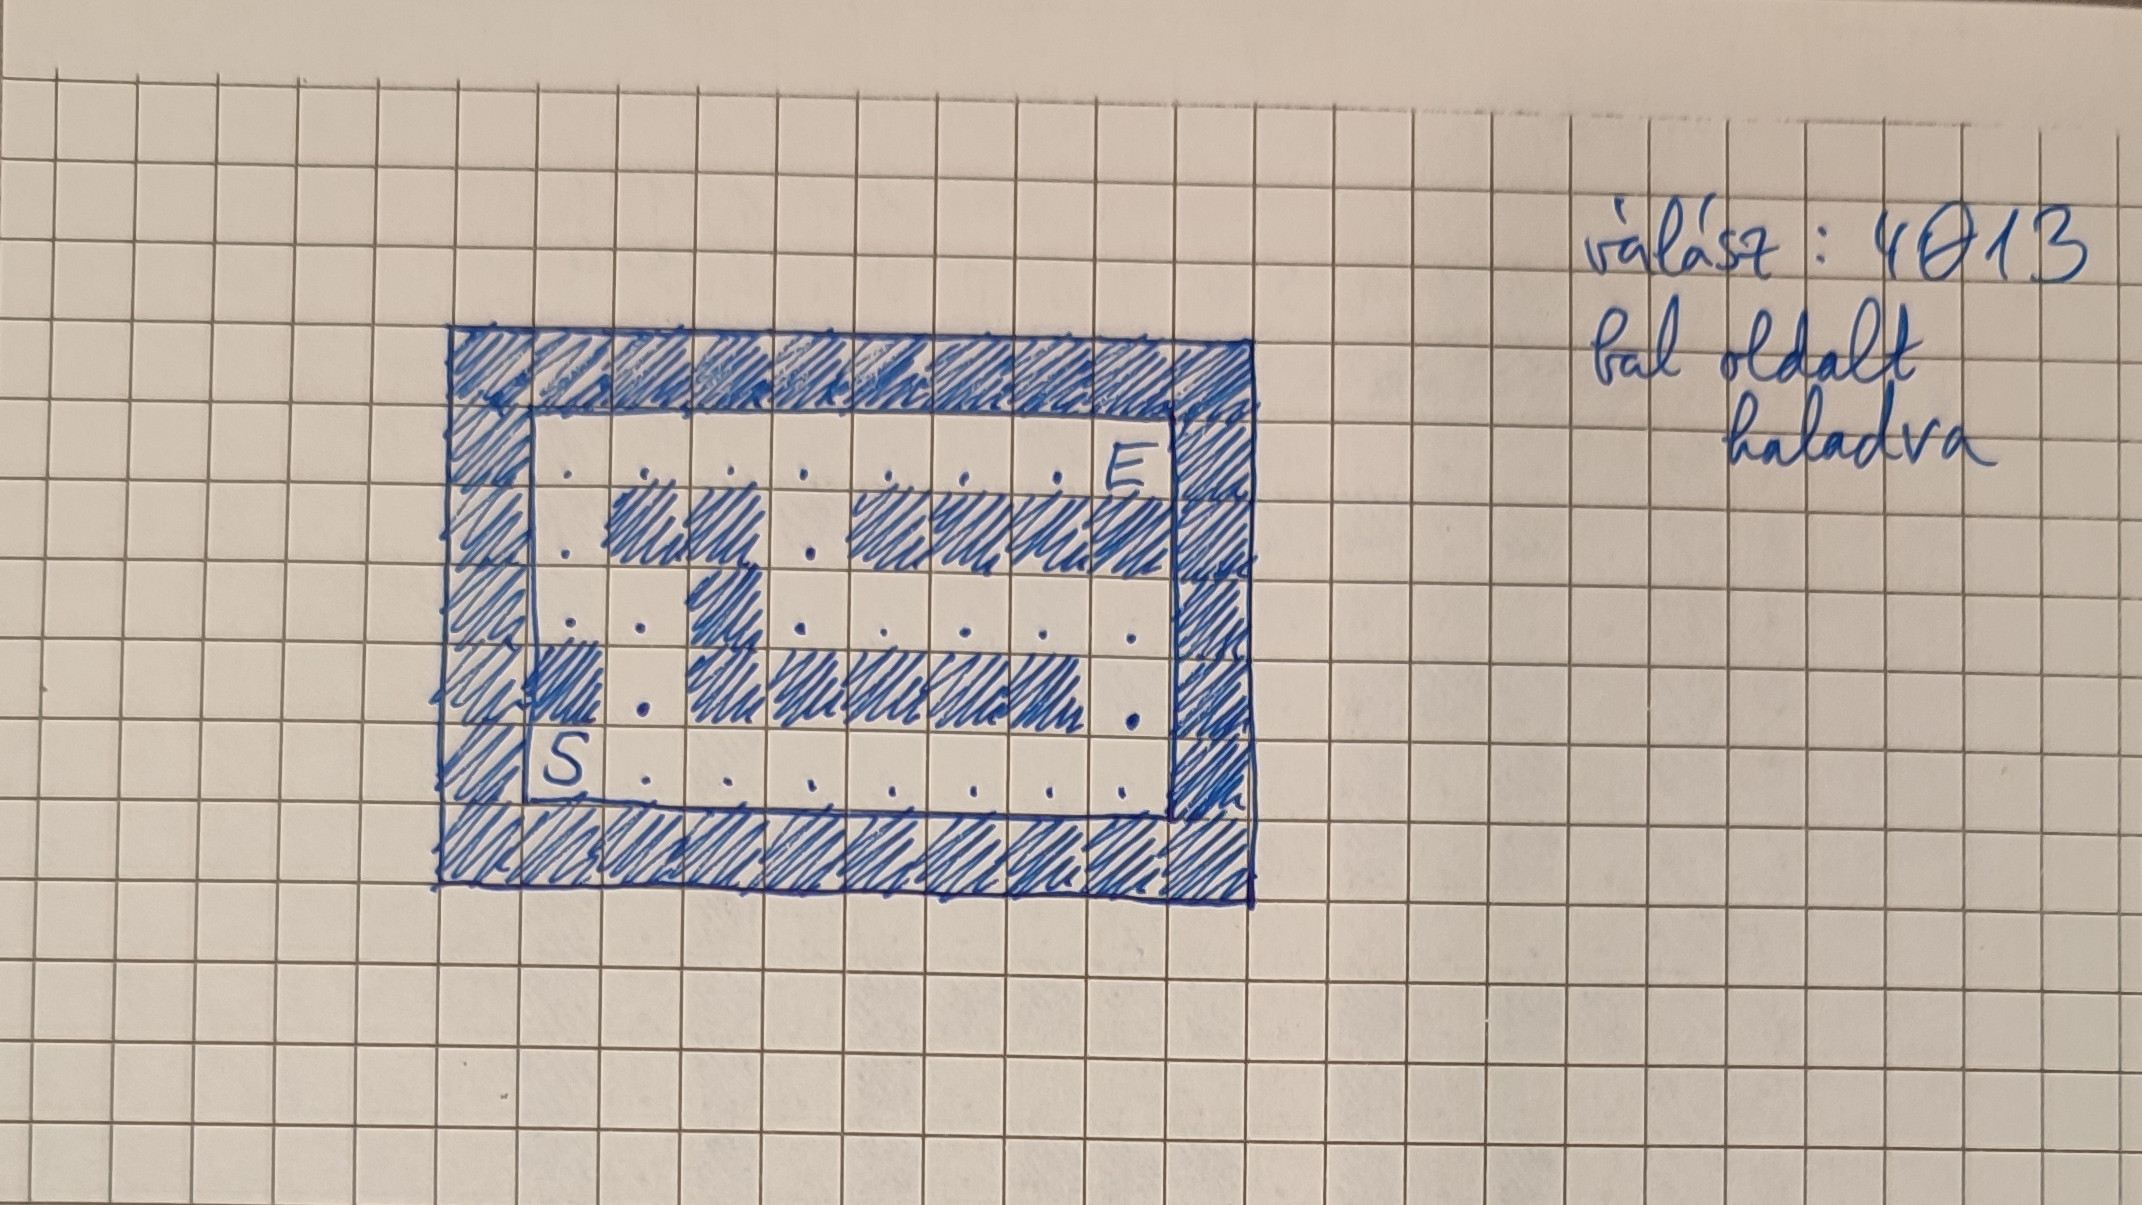 válász : 4013
bal oldalt
haladva
E
S